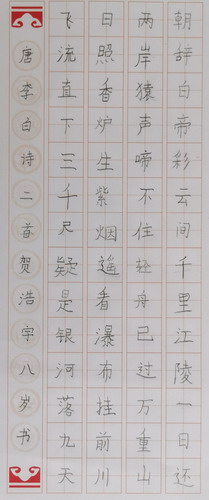 朝辞白帝彩云间千里江陵一日还
两岸猿声啼不住轻舟已过万重山
日照香炉生紫烟遥看瀑布挂前川
飞流直下三千尺疑是银河落九天
唐李白诗二首贺浩宇八岁书